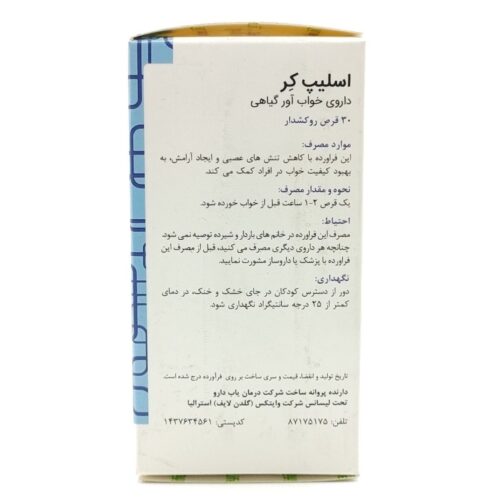 اسلیپ کِر
داروی خواب آور گیاهی
۳۰ قرص روکشدار
موارد مصرف:
این فرآورده با کاهش تنش های عصبی و ایجاد آرامش، به
بهبود کیفیت خواب در افراد کمک می کند.
نحوه و مقدار مصرف:
یک قرص ۲-۱ ساعت قبل از خواب خورده شود.
احتیاط:
مصرف این فرآورده در خانم های باردار و شیرده توصیه نمی شود.
چنانچه هر داروی دیگری مصرف می کنید، قبل از مصرف این
فرآورده با پزشک یا داروساز مشورت نمایید.
نگهداری:
دور از دسترس کودکان در جای خشک و خنک، در دمای
کمتر از ۲۵ درجه سانتیگراد نگهداری شود.
تاریخ تولید و انقضا، قیمت و سری ساخت بر روی فرآورده درج شده است.
دارنده پروانه ساخت شرکت درمان یاب دارو
تحت لیسانس شرکت وایتکس (گلدن لایف) استرالیا
تلفن: ۸۷۱۷۵۱۷۵ کدپستی: ۱۴۳۷۶۳۴۵۶۱